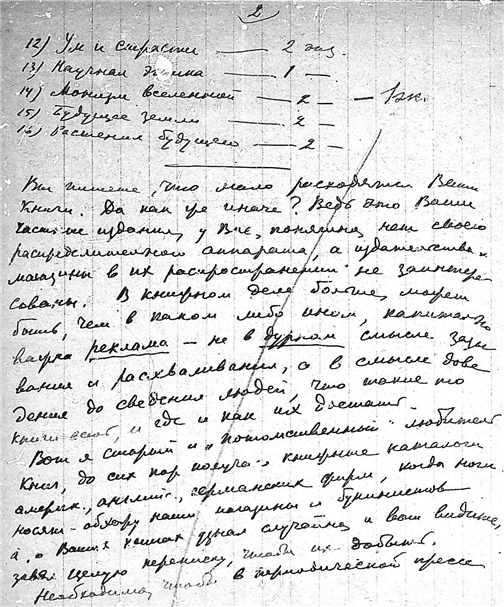 2
12) Ум и страсти — 2 экз.
13) Научная этика — 1 —
14) Монизм вселенной — 2 — — 1 эк.
15) Будущее земли — 2 —
16) Растения будущего — 2 —
Вы пишете, что мало расходятся Ваши
книги. Да как же иначе? Ведь это Ваши
частные издания, у Вас, понятно, нет своего
распределительного аппарата, а издательства и
магазины в их распространении не заинтере-
сованы. В книжном деле больше, может
быть, чем в каком либо ином, капитально
важна реклама — не в дурном смысле зазы
вания и расхваливания, а в смысле дове
дения до сведения людей, что такие то
книги есть, и где и как их достать.
Вот я старый и „потомственный" любитель
книг, до сих пор получаю книжные каталоги
америк., англий., германских фирм, когда ноги
носят — обхожу наши магазины и букинистов
а о Ваших книгах узнал случайно и вот видите,
завел целую переписку, чтобы их добыть.
Необходимо, чтобы в периодической прессе